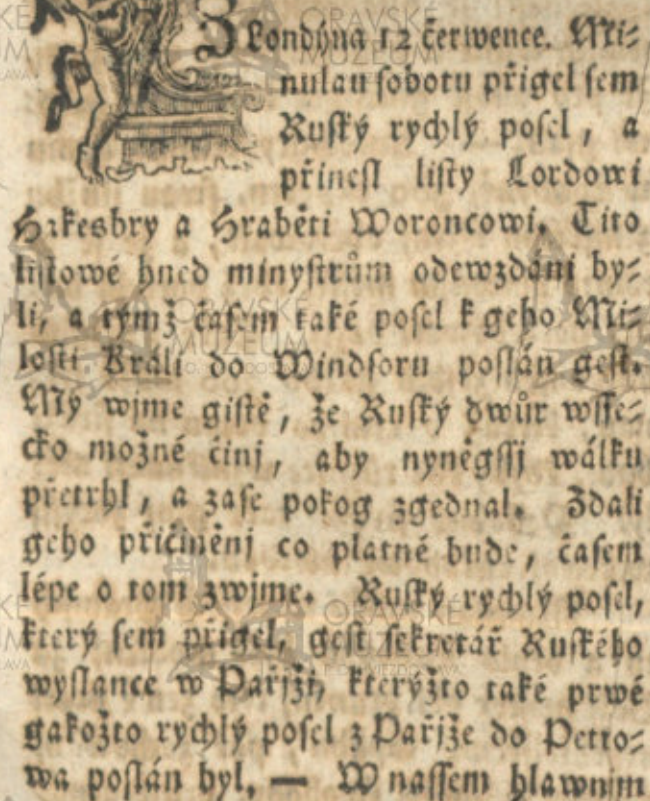 Z Londýna 12 čerwence. Mi-
nulau sobotu přigel sem
Ruský rychlý posel, a
přinesl listy Lordowi
Hakesbry a Hraběti Woroncowi. Tito
listowé hned minystrům odewzdáni by-
li, a týmž časem také posel k geho Mi-
losti Králi do Windsoru poslán gest.
My wjme gistě, že Ruský dwůr wsse-
cko možné činj, aby nyněgssj wálku
přetrhl, a zase pokog zgednal. Zdali
geho přičiněnj co platné bude, časem
lépe o tom zwjme. Ruský rychlý posel,
který sem přigel, gest sekretář Ruského
wyslance w Pařjži, kterýžto také prwé
gakožto rychlý posel z Pařjže do Petro-
wa poslán byl. — W nassem hlawnjm
ORAVSKÉ
MÚZEUM
ORAVSKÉ
MÚZEUM
ORAVSKÉ
MÚZEUM
P. O. HVIEZDOSLAVA